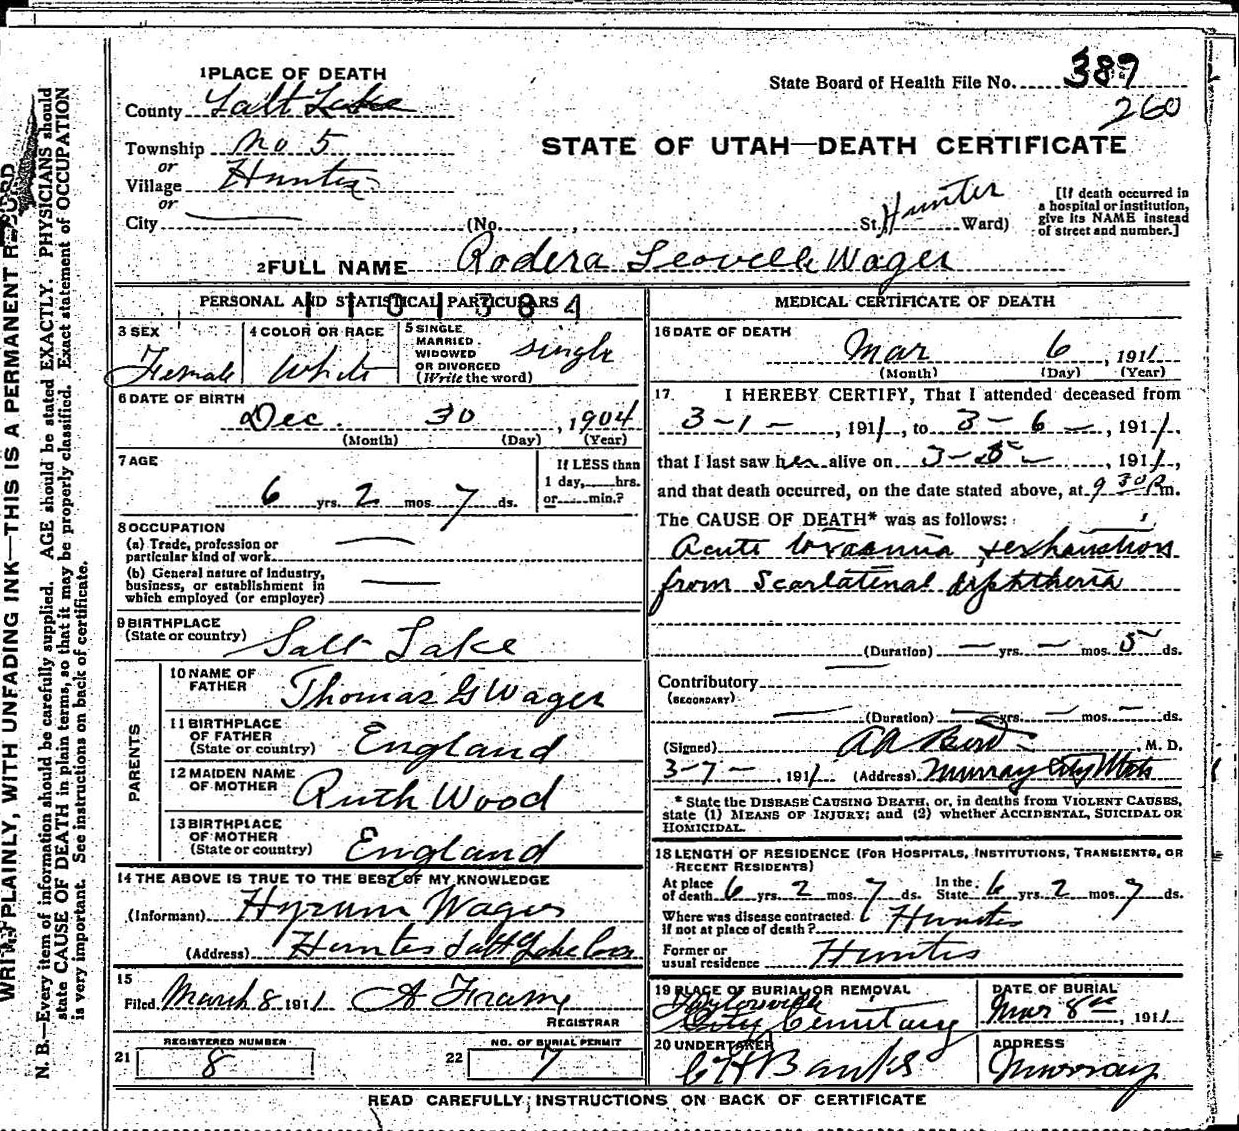 WRITE PLAINLY, WITH UNFADING INK—THIS IS A PERMANENT RECORD
N. B.—Every item of information should be carefully supplied. AGE should be stated EXACTLY. PHYSICIANS should
state CAUSE OF DEATH in plain terms, so that it may be properly classified. Exact statement of OCCUPATION
is very important. See instructions on back of certificate.
1 PLACE OF DEATH
County Salt Lake
Township No 5
or
Village Hunter
or
City
State Board of Health File No. 389
260
STATE OF UTAH—DEATH CERTIFICATE
(No. , St. Hunter Ward)
[If death occurred in
a hospital or institution,
give its NAME instead
of street and number.]
2 FULL NAME Rodera Leovell Wager
PERSONAL AND STATISTICAL PARTICULARS
1101384
3 SEX
Female
4 COLOR OR RACE
White
5 SINGLE
MARRIED
WIDOWED
OR DIVORCED
(Write the word)
single
6 DATE OF BIRTH
Dec. 30, 1904
(Month) (Day) (Year)
7 AGE
6 yrs. 2 mos. 7 ds.
If LESS than
1 day, hrs.
or min.?
8 OCCUPATION
(a) Trade, profession or
particular kind of work
(b) General nature of industry,
business, or establishment in
which employed (or employer)
9 BIRTHPLACE
(State or country) Salt Lake
PARENTS
10 NAME OF
FATHER Thomas G Wager
11 BIRTHPLACE
OF FATHER
(State or country) England
12 MAIDEN NAME
OF MOTHER Ruth Wood
13 BIRTHPLACE
OF MOTHER
(State or country) England
14 THE ABOVE IS TRUE TO THE BEST OF MY KNOWLEDGE
(Informant) Hyrum Wager
(Address) Hunter Salt Lake Co
15
Filed March 8 1911 A Frame
REGISTRAR
REGISTERED NUMBER
21 8
NO. OF BURIAL PERMIT
22 7
MEDICAL CERTIFICATE OF DEATH
16 DATE OF DEATH
Mar 6, 1911
(Month) (Day) (Year)
17. I HEREBY CERTIFY, That I attended deceased from
3-1-, 1911, to 3-6-, 1911,
that I last saw her alive on 3-5-, 1911,
and that death occurred, on the date stated above, at 9 30 P m.
The CAUSE OF DEATH* was as follows:
Acute toxaemia & exhaustion
from Scarlatinal diphtheria
(Duration) — yrs. — mos. 5 ds.
Contributory
(SECONDARY)
(Duration) — yrs. — mos. — ds.
(Signed) , M. D.
3-7-, 1911 (Address) Murray City Utah
* State the DISEASE CAUSING DEATH, or, in deaths from VIOLENT CAUSES,
state (1) MEANS OF INJURY; and (2) whether ACCIDENTAL, SUICIDAL OR
HOMICIDAL.
18 LENGTH OF RESIDENCE (FOR HOSPITALS, INSTITUTIONS, TRANSIENTS, OR
RECENT RESIDENTS)
At place
of death 6 yrs. 2 mos. 7 ds. In the
State 6 yrs. 2 mos. 7 ds.
Where was disease contracted.
If not at place of death? Hunter
Former or
usual residence Hunter
19 PLACE OF BURIAL OR REMOVAL
Taylorsville
City Cemitary
DATE OF BURIAL
Mar 8th, 1911
20 UNDERTAKER
C H Banks
ADDRESS
Murray
READ CAREFULLY INSTRUCTIONS ON BACK OF CERTIFICATE